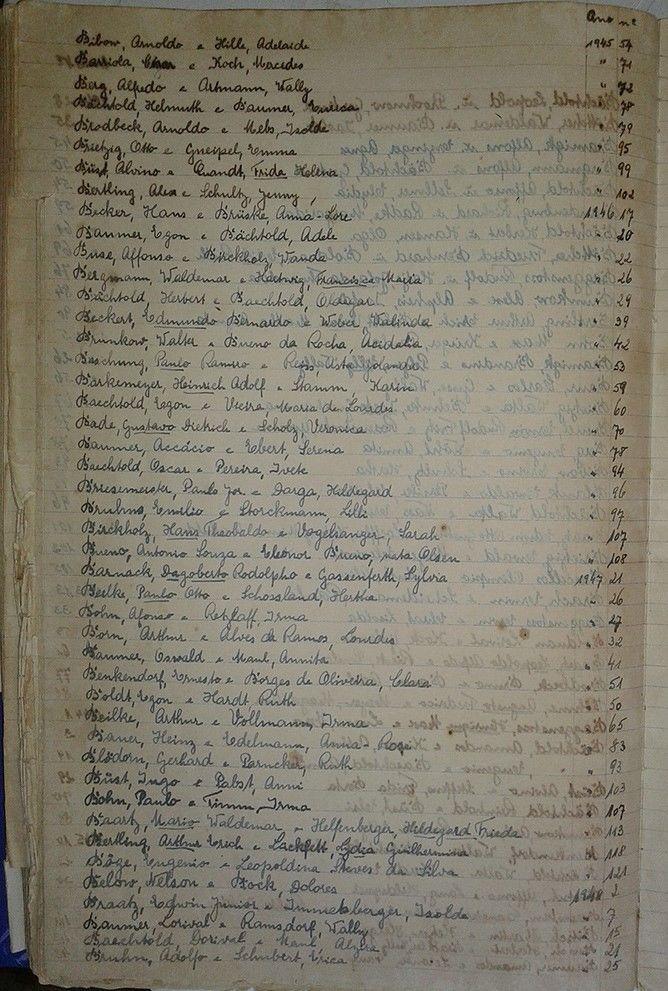 Ano nº
Bibow, Arnoldo e Hille, Adelaide 1945 54
Barriola, e Koch, Mercedes " 71
Berg, Alfredo e Artmann, Wally " 72
Bächtold, Helmuth e Baumer, " 78
Brodbeck, Arnoldo e Mebs, Isolde " 79
Britzig, Otto e Gneipel, Emma " 95
Büst, Alvino e Quandt, Frida Helena " 99
Bertling, Alex e Schultz, Jenny " 102
Becker, Hans e Brüske, Anna-Lore 1946 17
Baumer, Egon e Bächtold, Adele " 20
Buse, Affonso e Birckholz, Wanda " 22
Bergmann, Waldemar e Hartwig, Francisca Maria " 26
Bächtold, Herbert e Baechtold, " 29
Beckert, Edmundo Bernardo e Weber, Walinda " 39
Brunkow, Walter e Bueno da Rocha, Acidalia " 42
Baschung, Paulo Ramiro e Yolanda " 53
Barkemeyer, Heinrich Adolf e Stamm, Karin " 59
Baechtold, Egon e Vieira, Maria de Lourdes " 60
Bade, Gustavo Dietrich e Scholz, Veronica " 70
Baumer, Accácio e Ebert, Serena " 78
Baechtold, Oscar e Pereira, Ivete " 94
Briesemeister, Paulo Jor. e Darga, Hildegard " 96
Bruhns, Emilio e Storckmann, Lilli " 97
Birckholz, Hans Theobaldo e Vogelsanger, Sarah " 107
Bueno, Antonio Souza e Eleonor Bueno, nata Olsen " 108
Barnack, Dagoberto Rodolpho e Gassenferth, Sylvia 1947 21
Beilke, Paulo Otto e Schossland, Hertha " 26
Bohn, Afonso e Retzlaff, Irma " 27
Born, Arthur e Alves de Ramos, Lourdes " 32
Baumer, Oswald e Maul, Annita " 41
Benkendorf, Ernesto e Borges de Oliveira, Clara " 51
Boldt, Egon e Hardt, Ruth " 50
Beilke, Arthur e Vollmann, Irma " 65
Bauer, Heinz e Edelmann, Anna-Rose " 83
Blödorn, Gerhard e Parucker, Ruth " 93
Büst, Ingo e Pabst, Anni " 103
Bohn, Paulo e Timm, Irma " 107
Baartz, Mario Waldemar e Helfenberger, Hildegard Frieda " 113
Bertling, Arthur Erich e Lackfett, Lydia Guilhermina " 118
Böge, Eugenio e Leopoldina Steves da Silva " 121
Below, Nelson e Bock, Dolores 1948 2
Braatz, Edwin Junior e Immelsberger, Isolde " 7
Baumer, Lorival e Ramsdorf, Wally " 15
Baechtold, Dorival e Maul, " 21
Bruhn, Adolfo e Schubert, Erica " 25